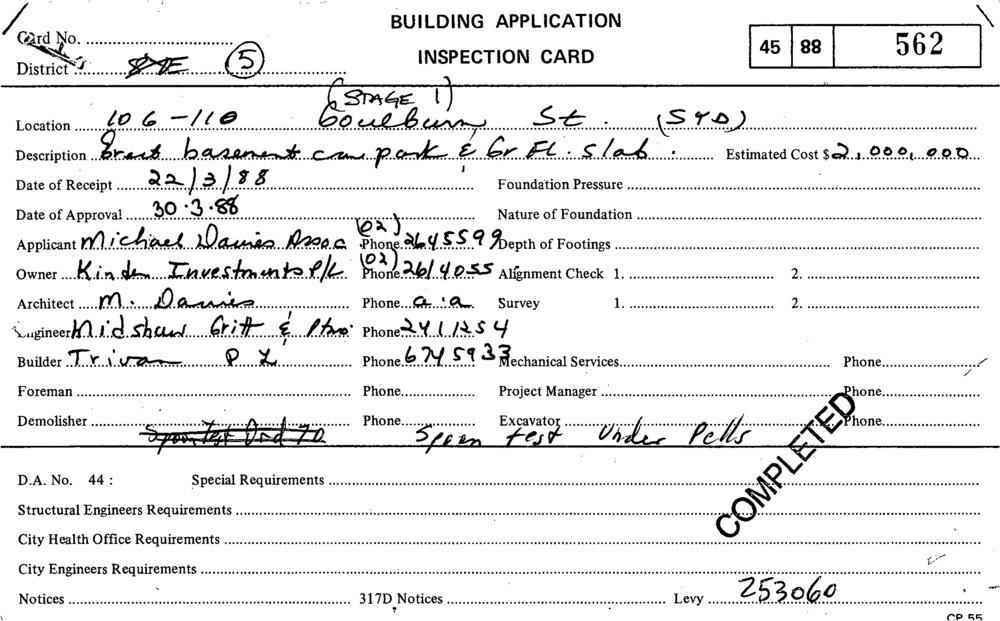 BUILDING APPLICATION
Card No.
INSPECTION CARD
45 88 562
District 5
(STAGE 1)
Location 106-110 Goulburn St. (SYD)
Description Erect basement car park & Gr Fl. slab. Estimated Cost $2,000,000
Date of Receipt 22/3/88 Foundation Pressure
Date of Approval 30.3.88 Nature of Foundation
Applicant Michael Davies Assoc Phone (02) 2645599 Depth of Footings
Owner Kinden Investments P/L Phone (02) 2614055 Alignment Check 1. 2.
Architect M. Davies Phone a.a Survey 1. 2.
Engineer Phone 2411254
Builder Trivan P L Phone 6745933 Mechanical Services Phone
Foreman Phone Project Manager Phone
Demolisher Phone Excavator Phone
test Under Pells
COMPLETED
D.A. No. 44 : Special Requirements
Structural Engineers Requirements
City Health Office Requirements
City Engineers Requirements
Notices 317D Notices Levy 253060
CP 55